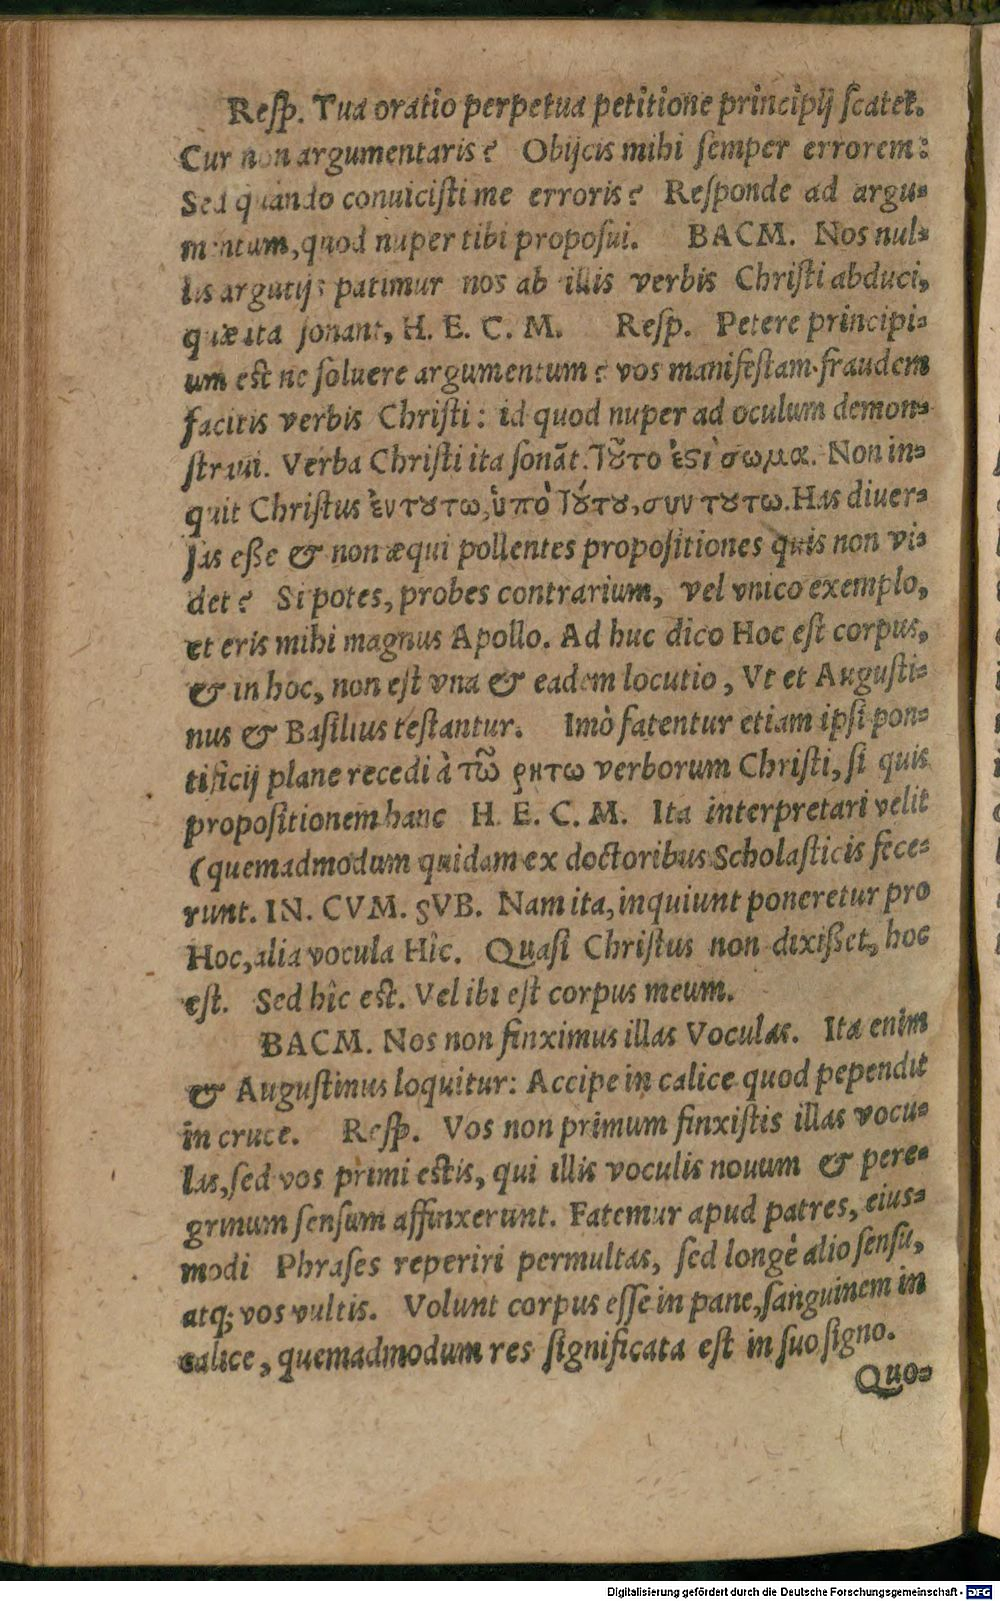 Reſp. Tua oratio perpetua petitione principij ſcatet.
Cur non argumentaris? Obijcis mihi ſemper errorem:
Sed quando conuiciſti me erroris? Reſponde ad argu-
mentum, quod nuper tibi propoſui. BACM. Nos nul-
lis argutijs patimur nos ab illis verbis Chriſti abduci,
quæ ita ſonant, H. E. C. M. Reſp. Petere principi-
um est ne ſoluere argumentum? vos manifeſtam fraudem
facitis verbis Chriſti: id quod nuper ad oculum demon-
ſtraui. Verba Chriſti ita ſonāt. Τȣ͂το ἐϛὶ σωμα. Non in-
quit Chriſtus ἐν τȣτω, ὑπὸ Τȣ́τȣ, συν τȣτω. Has diuer-
ſas eße & non æqui pollentes propoſitiones quis non vi-
det? Si potes, probes contrarium, vel vnico exemplo,
et eris mihi magnus Apollo. Ad huc dico Hoc eſt corpus,
& in hoc, non eſt vna & eadem locutio, Vt et Auguſti-
nus & Baſilius teſtantur. Imò fatentur etiam ipſi pon-
tificij plane recedi à τῶ ῥητω verborum Chriſti, ſi quis
propoſitionem hanc H. E. C. M. Ita interpretari velit
(quemadmodum quidam ex doctoribus Scholaſticis fece-
runt. IN. CVM. SVB. Nam ita, inquiunt poneretur pro
Hoc, alia vocula Hîc. Quaſi Chriſtus non dixißet, hoc
eſt. Sed hîc est. Vel ibi eſt corpus meum.
BACM. Nos non finximus illas Voculas. Ita enim
& Auguſtinus loquitur: Accipe in calice quod pependit
in cruce. Reſp. Vos non primum finxiſtis illas vocu-
las, ſed vos primi estis, qui illis voculis nouum & pere-
grinum ſenſum affinxerunt. Fatemur apud patres, eius-
modi Phraſes reperiri permultas, ſed longè alio ſenſu,
atq; vos vultis. Volunt corpus eſſe in pane, ſanguinem in
calice, quemadmodum res ſignificata eſt in ſuo ſigno.
Quo-
Digitalisierung gefördert durch die Deutsche Forschungsgemeinschaft - DFG